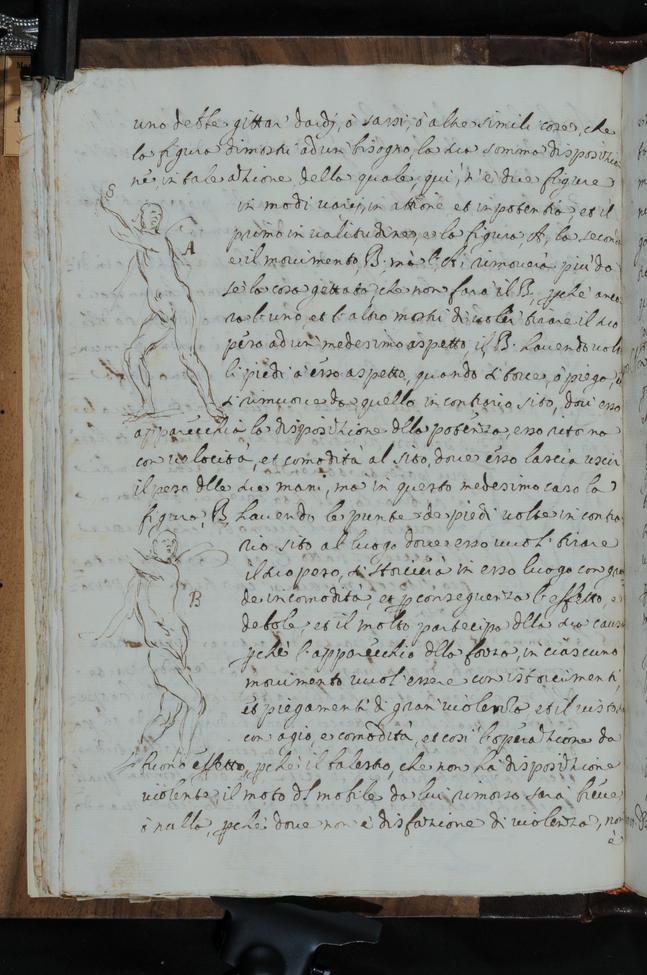 uno debbe gittar dardi, ò sassi, ò altre simili cose, che
la figura dimostri ad un bisogno la sua somma dispositio
ne in tale attione della quale, qui, n'è due figure
in modi varij, in attione et in potentia, et il
primo in valitudine, e la figura A, la secon
è il movimento, B. mà l'A. rimoverà più da
se la cosa gettata che non farà il B, pche anco
ra l'uno, et l'altro mostri di voler tirare il suo
peso ad un medesimo aspetto, il B. havendo volti
li piedi à esso aspetto, quando si torce, ò piega,
si rimuove da quello in contrario sito, dove esso
apparecchia la dispositione dlla potenza, esso ritorna
con velocità, et comodità al sito, dove esso lascia uscir
il peso dlle sue mani, ma in questo medesimo caso la
figura, B, havendo le punte de piedi volte in contra
rio sito al luogo dove esso vuol tirare
il suo peso, si storcerà in esso luogo con gran
de incomodità, et p conseguenza l'effetto è
debole, et il moto partecipa dlla sua causa
pchè l'apparecchio dlla forza, in ciascuno
movimento vuol essere con istorcimenti,
et piegamenti di gran violenza et il
con agio, e comodità, et così l'operatione ha
buono effetto, pchè il balestro, che non hà dispositione
violente il moto dl mobile da lui rimosso sarà breve
ò nulla, pche dove non è disfatione di violenza, non
è
A
B